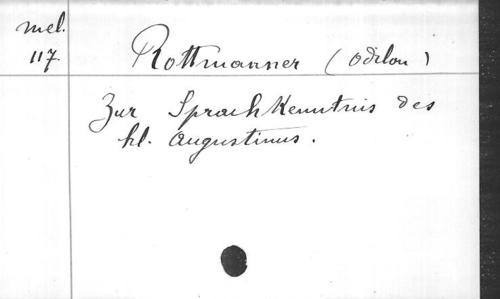 mel.
117
Rottmanner (Odilon)
Zur Sprachkenntnis des
hl. Augustinus.